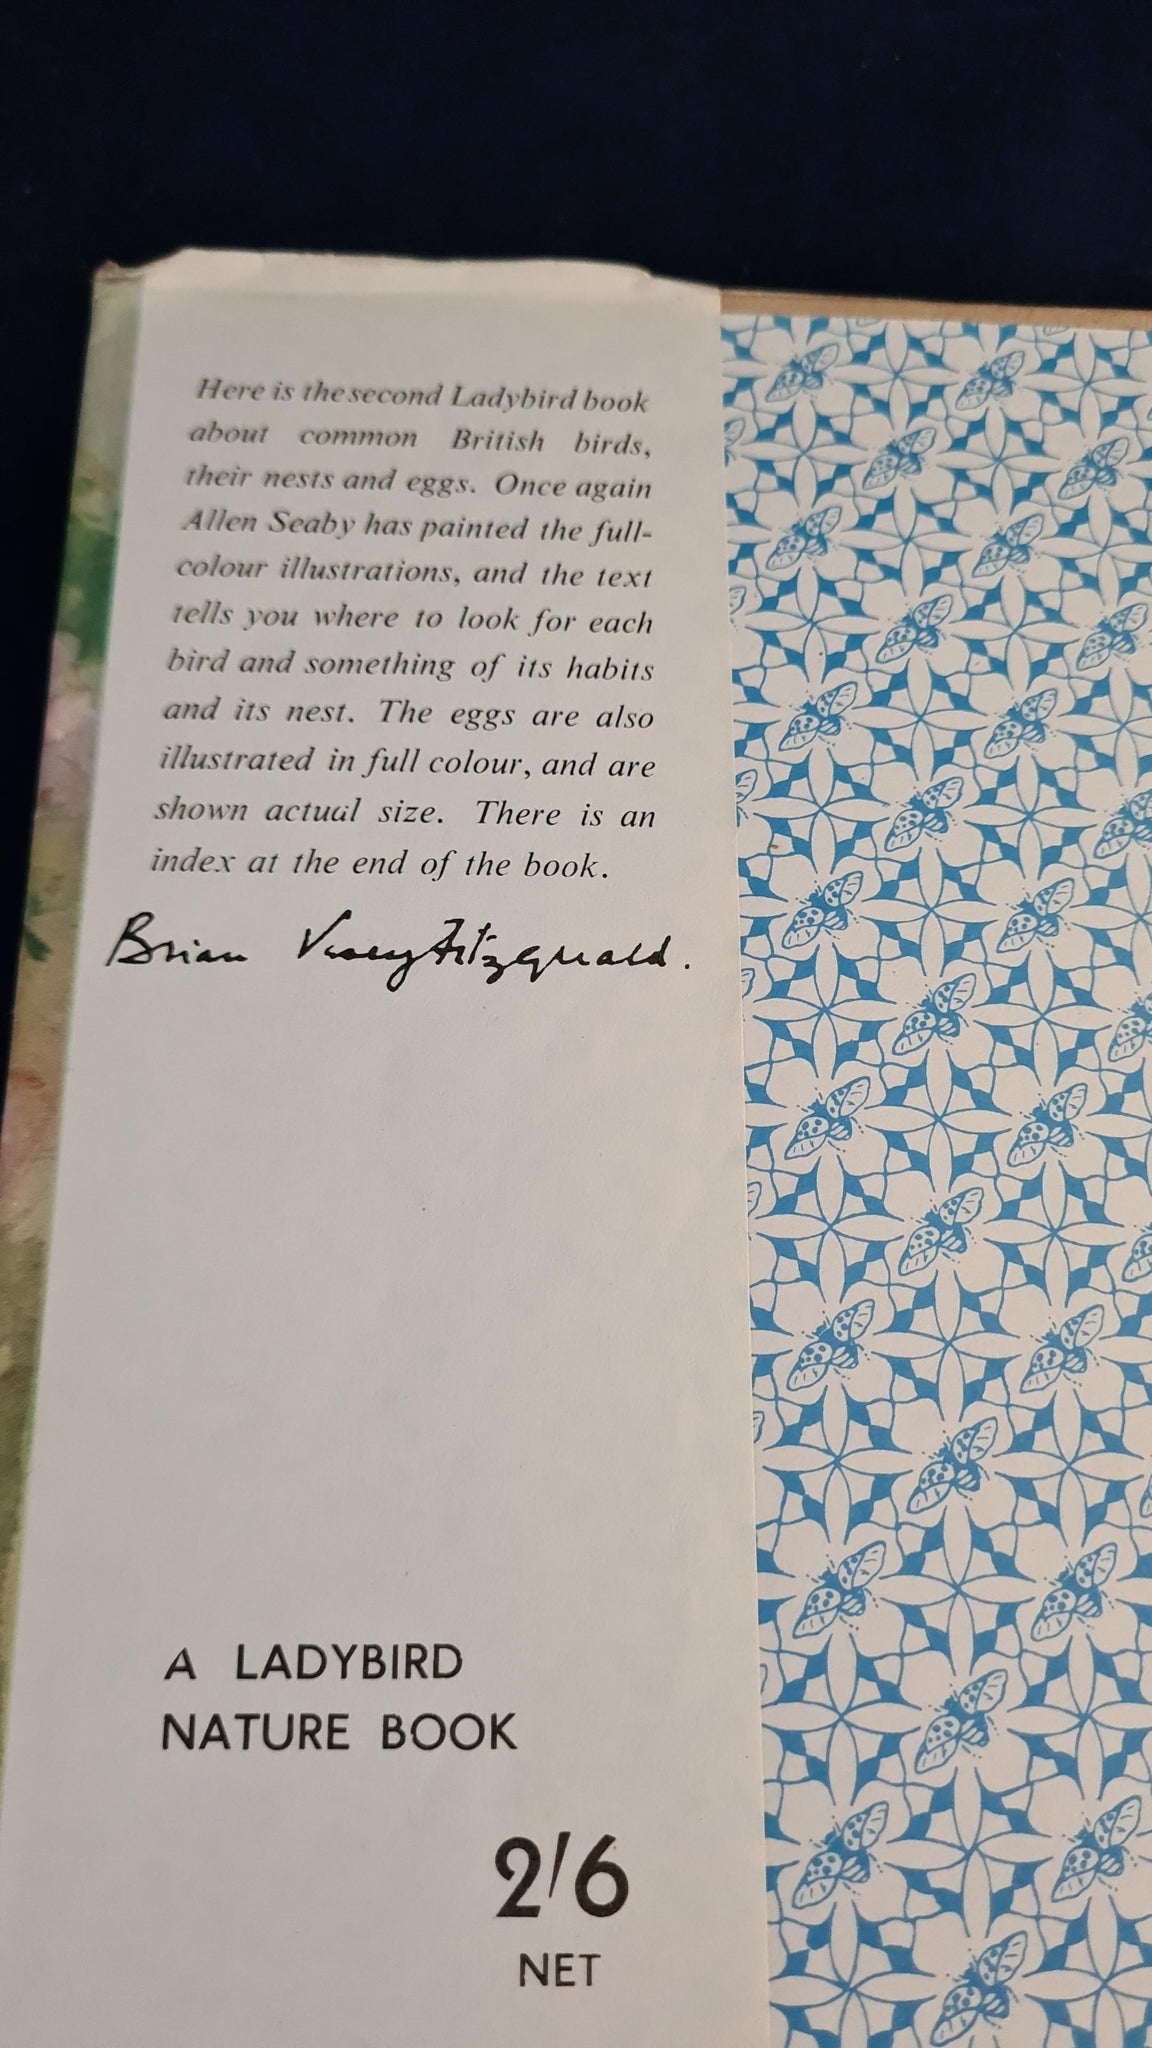 Here is the second Ladybird book
about common British birds,
their nests and eggs. Once again
Allen Seaby has painted the full-
colour illustrations, and the text
tells you where to look for each
bird and something of its habits
and its nest. The eggs are also
illustrated in full colour, and are
shown actual size. There is an
index at the end of the book.
Brian Vesey Fitzgerald.
A LADYBIRD
NATURE BOOK
2/6
NET